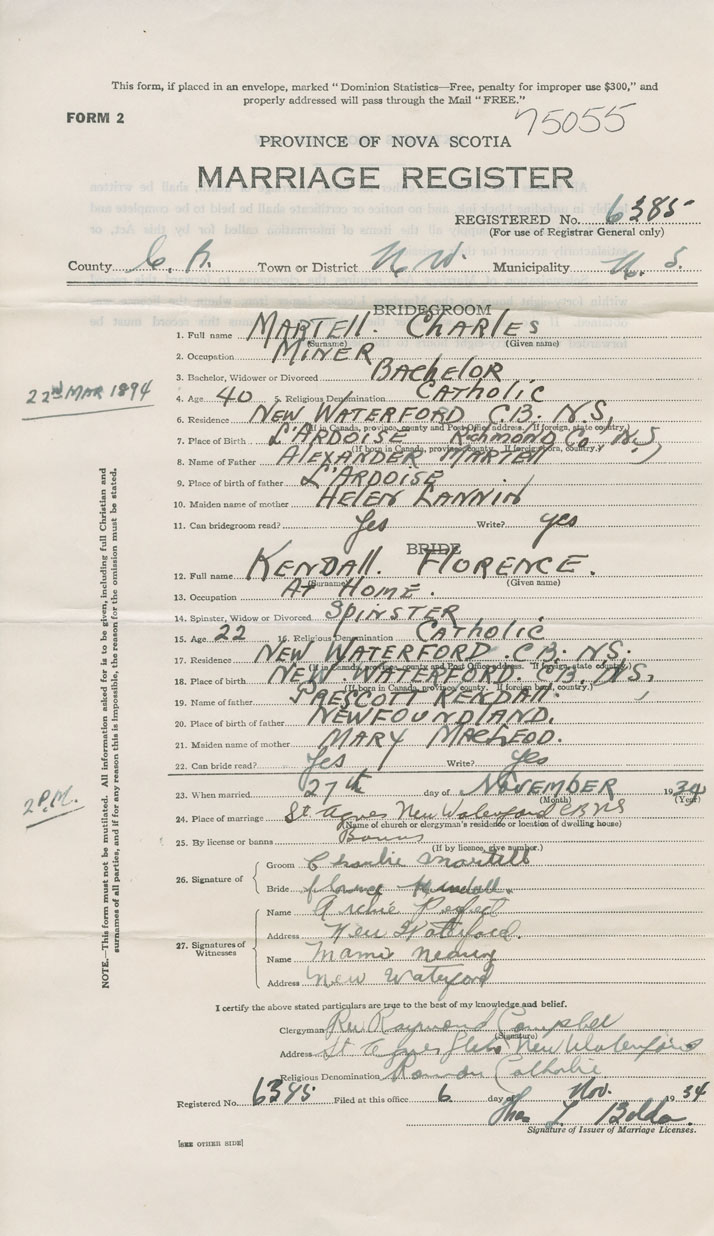 This form, if placed in an envelope, marked "Dominion Statistics—Free, penalty for improper use $300," and
properly addressed will pass through the Mail "FREE."
FORM 2
75055
PROVINCE OF NOVA SCOTIA
MARRIAGE REGISTER
REGISTERED No. 6385
(For use of Registrar General only)
County C. B. Town or District N. W. Municipality N. S.
BRIDEGROOM
1. Full name MARTELL. CHARLES
(Surname) (Given name)
2. Occupation MINER
3. Bachelor, Widower or Divorced BACHELOR
22nd MAR 1894
4. Age 40 5. Religious Denomination CATHOLIC
6. Residence NEW WATERFORD C.B. N.S.
(If in Canada, province, county and Post Office address. If foreign, state country.)
7. Place of Birth L'ARDOISE RICHMOND Co. N.S.
(If born in Canada, province, county. If foreign born, country.)
8. Name of Father ALEXANDER MARTELL
9. Place of birth of father L'ARDOISE
10. Maiden name of mother HELEN LANNIN
11. Can bridegroom read? Yes Write? yes
BRIDE
12. Full name KENDALL. FLORENCE.
(Surname) (Given name)
13. Occupation AT HOME.
14. Spinster, Widow or Divorced SPINSTER
15. Age 22 16. Religious Denomination CATHOLIC
17. Residence NEW WATERFORD. C.B. N.S.
(If in Canada, province, county and Post Office address. If foreign, state country.)
18. Place of birth NEW WATERFORD. C.B. N.S.
(If born in Canada, province, county. If foreign born, country.)
19. Name of father PRESCOTT KENDALL
20. Place of birth of father NEWFOUNDLAND.
21. Maiden name of mother MARY MACLEOD.
22. Can bride read? Yes Write? Yes
23. When married 27th day of NOVEMBER 1934
(Month) (Year)
2 P.M.
24. Place of marriage St Agnes New Waterford CB NS
(Name of church or clergyman's residence or location of dwelling house)
25. By license or banns Banns
(If by licence, give number.)
26. Signature of
Groom Charlie Martell
Bride Florence Kendall
27. Signatures of Witnesses
Name Archie Perfect
Address New Waterford.
Name Mamie
Address New Waterford
I certify the above stated particulars are true to the best of my knowledge and belief.
Clergyman Rev. Raymond Campbell
(Signature)
Address St Agnes New Waterford
Religious Denomination Roman Catholic
Registered No. 6385 Filed at this office 6 day of Nov. 1934
Thos
Signature of Issuer of Marriage Licenses.
[SEE OTHER SIDE]
NOTE.—This form must not be mutilated. All information asked for is to be given, including full Christian and
surnames of all parties, and if for any reason this is impossible, the reason for the omission must be stated.